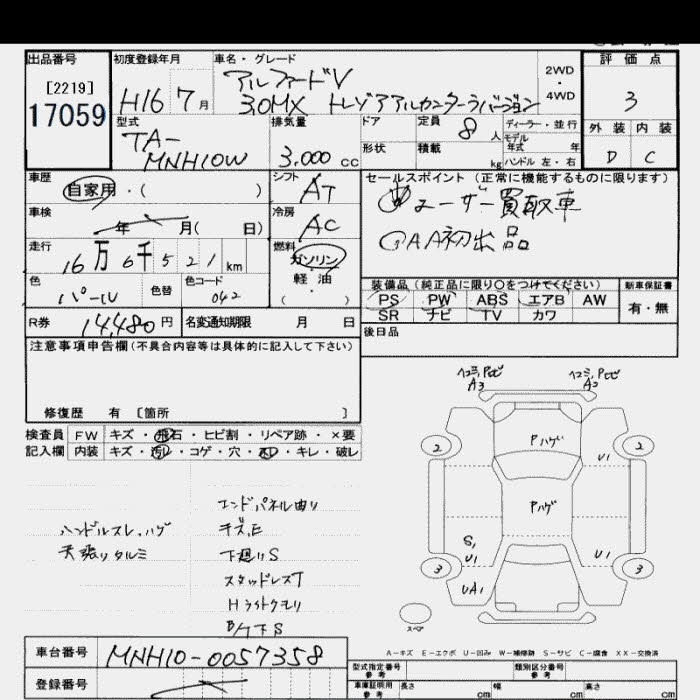 出品番号 初度登録年月 車名・グレード 評価点
[2219] アルファードV 2WD
17059 H16 7月 3.0MX トレゾアアルカンターラバージョン ・4WD 3
型式 排気量 ドア 定員 8人 ディーラー・並行 外装 内装
TA- モデル
MNH10W 3,000 cc 形状 積載 kg 年式 年 D C
ハンドル 左・右
車歴 シフト セールスポイント (正常に機能するものに限ります)
自家用・( ) AT ユーザー買取車
車検 冷房
年 月( 日) AC AA初出品
走行 燃料
16万6千521km ガソリン
軽・油
( )
色 色替 色コード 装備品 (純正品に限り○をつけてください) 新車保証書
パール 042 PS PW ABS エアB AW 有・無
SR ナビ TV カワ
R券 14,480円 名変通知期限 月 日 後日品
注意事項申告欄(不具合内容等は具体的に記入して下さい)
修復歴 有 [箇所 ]
検査員 FW キズ・飛石・ヒビ割・リペア跡・×要
記入欄 内装 キズ・汚レ・コゲ・穴・キレ・破レ
ヘコミ,Pサビ ヘコミ,Pサビ
A3 A2
2 Pハゲ 2
U1
Pハゲ
S1
U1 U1
3 3
UA1
スペア
エンドパネル曲り
ハンドルスレ,ハゲ キズ,E
天張りタルミ 下廻りS
スタッドレスT
Hライトクモリ
下S
A-キズ E-エクボ U-凹み W-補修跡 S-サビ C-腐食 XX-交換済
車台番号 MNH10-0057358
登録番号
型式指定番号 参考 類別区分番号 参考
車庫証明用 参考 長さ cm 幅 cm 高さ cm